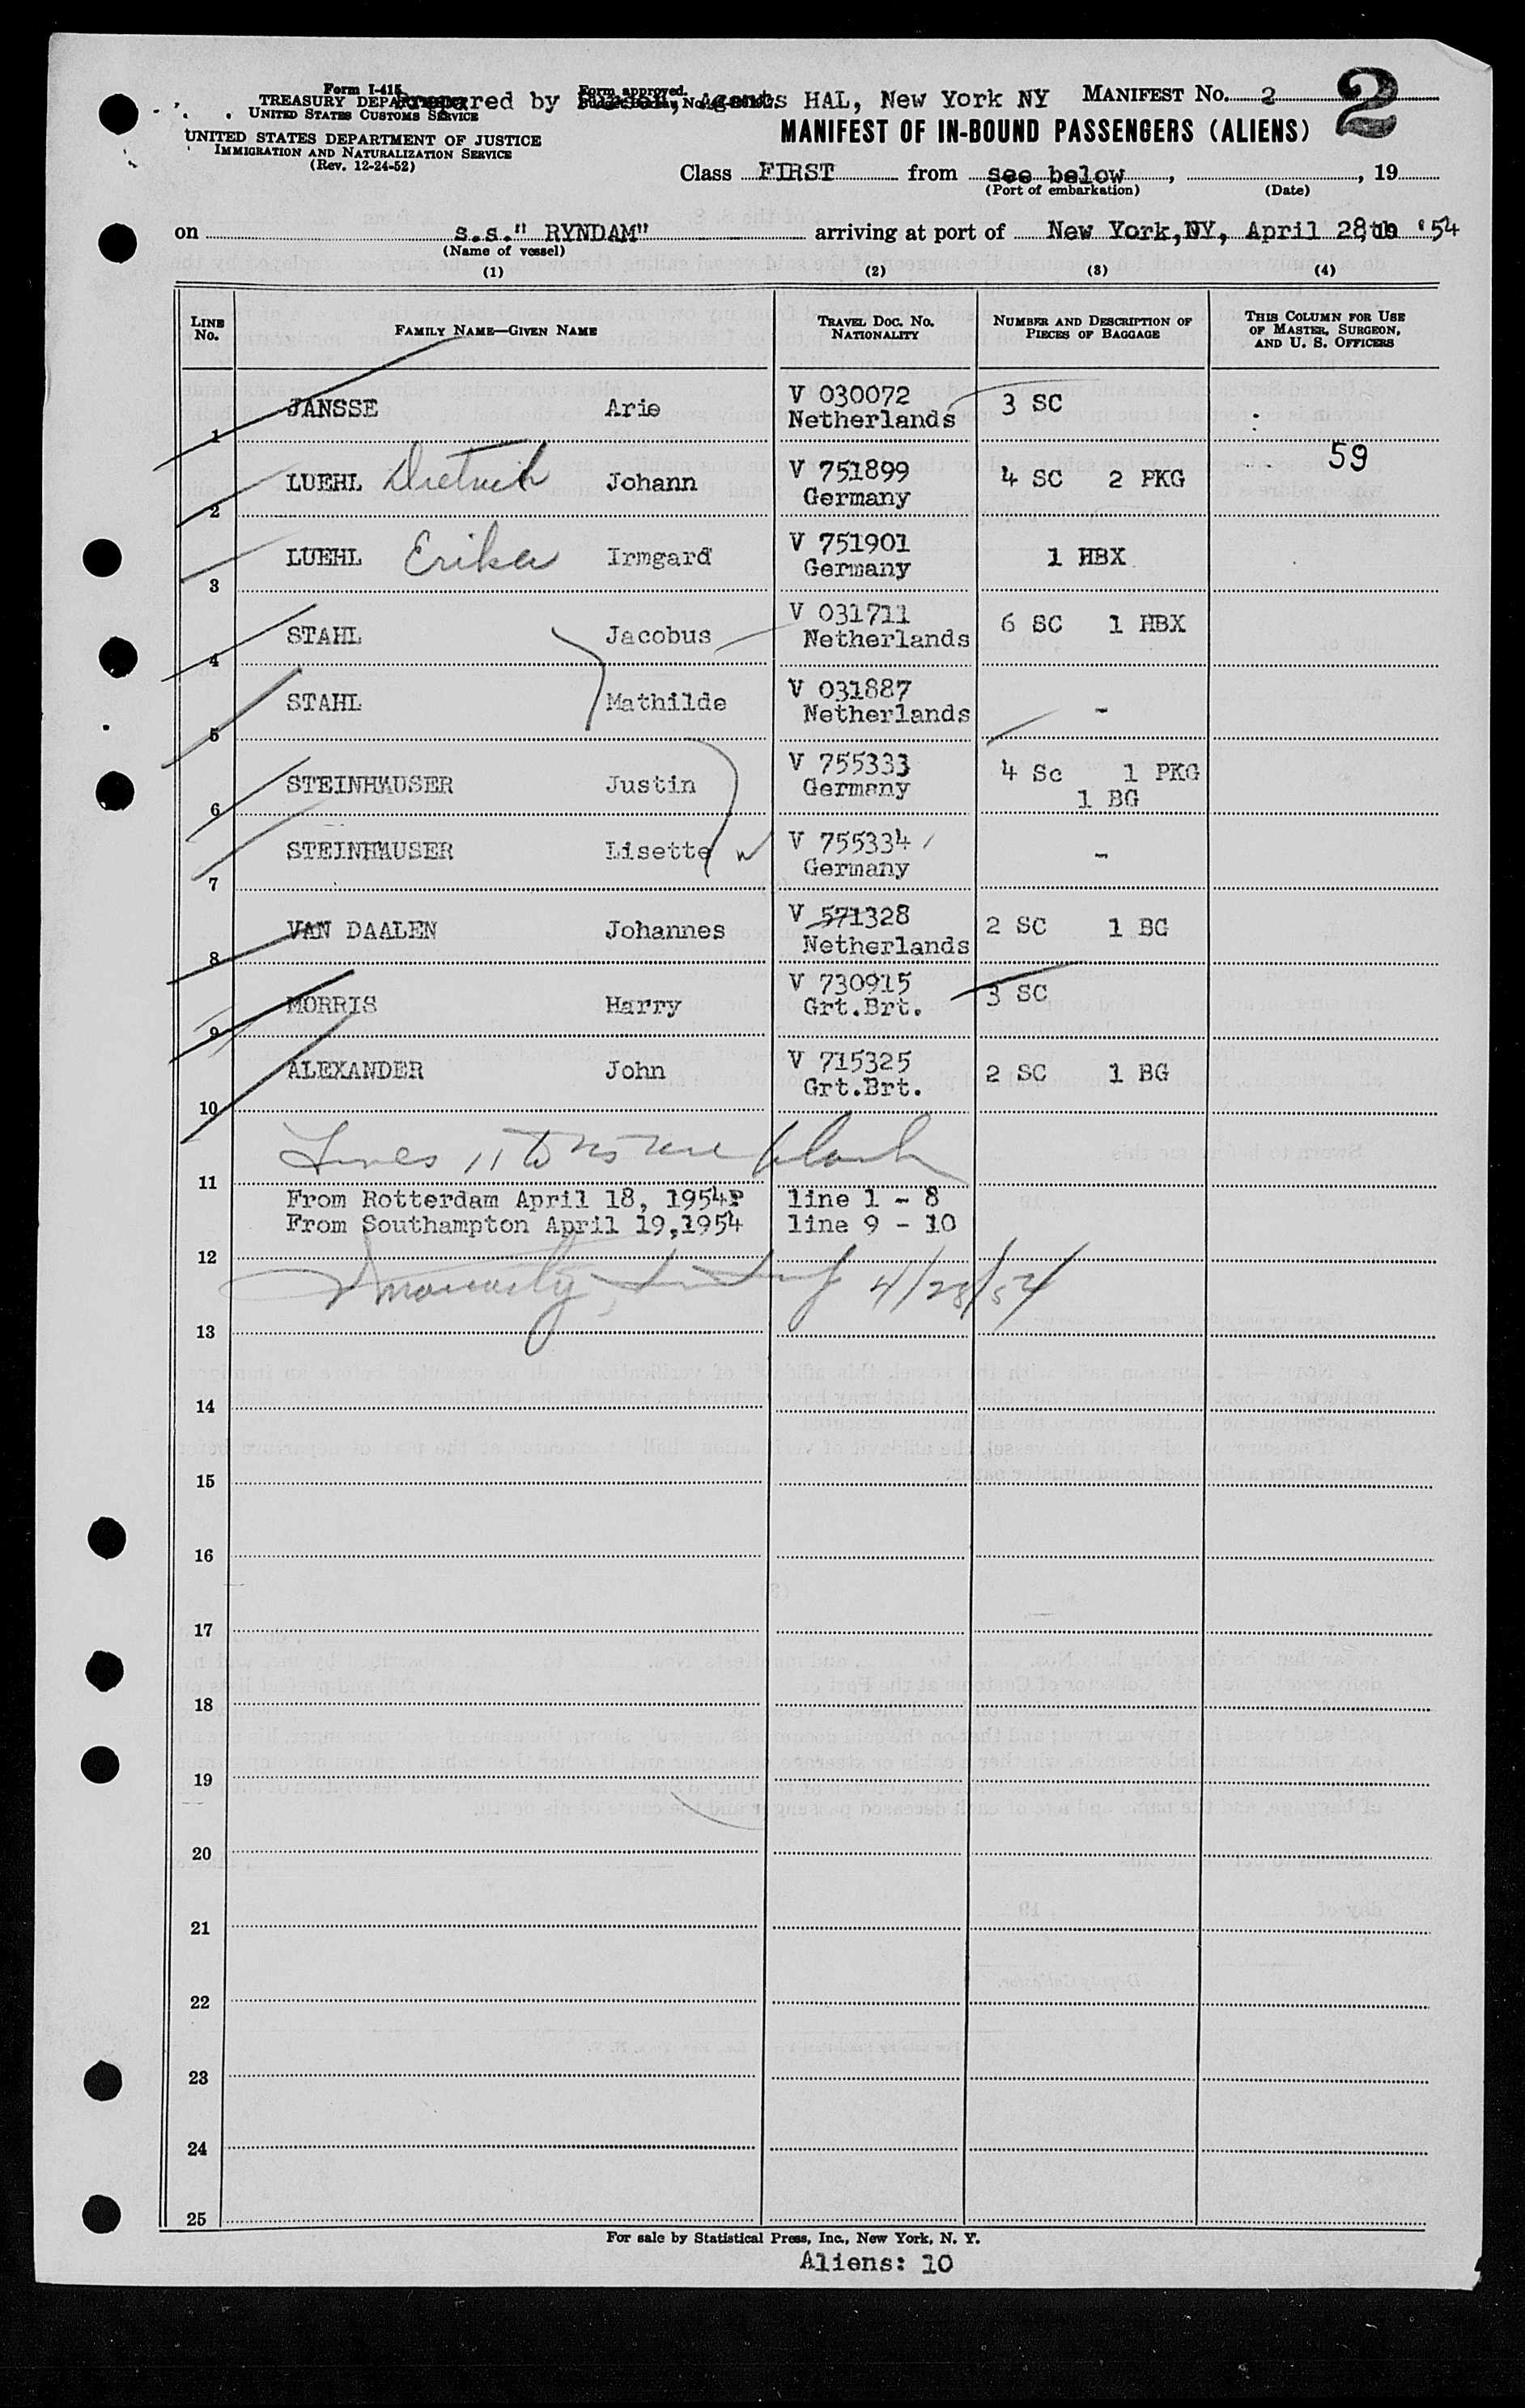 Form I-415
TREASURY DEPARTMENT
UNITED STATES CUSTOMS SERVICE
UNITED STATES DEPARTMENT OF JUSTICE
IMMIGRATION AND NATURALIZATION SERVICE
(Rev. 12-24-52)
Form approved.
Prepared by Agents HAL, New York NY
MANIFEST NO. 2
2
MANIFEST OF IN-BOUND PASSENGERS (ALIENS)
Class FIRST from see below, , 19
(Port of embarkation) (Date)
on s.s." RYNDAM" arriving at port of New York,NY, April 28th '54
(Name of vessel)
(1) (2) (3) (4)
LINE NO. FAMILY NAME—GIVEN NAME TRAVEL DOC. NO. NATIONALITY NUMBER AND DESCRIPTION OF PIECES OF BAGGAGE THIS COLUMN FOR USE OF MASTER, SURGEON, AND U. S. OFFICERS
1 JANSSE Arie V 030072 Netherlands 3 SC
59
2 LUEHL Dietrich Johann V 751899 Germany 4 SC 2 PKG
3 LUEHL Erika Irmgard V 751901 Germany 1 HBX
4 STAHL Jacobus V 031711 Netherlands 6 SC 1 HBX
5 STAHL Mathilde V 031887 Netherlands -
6 STEINHAUSER Justin V 755333 Germany 4 Sc 1 PKG 1 BG
7 STEINHAUSER Lisette V 755334 Germany -
8 VAN DAALEN Johannes V 571328 Netherlands 2 SC 1 BG
9 MORRIS Harry V 730915 Grt.Brt. 3 SC
10 ALEXANDER John V 715325 Grt.Brt. 2 SC 1 BG
Lines 11 to 25 are blank
11
From Rotterdam April 18, 1954 line 1 - 8
From Southampton April 19,1954 line 9 - 10
12
4/28/54
13
14
15
16
17
18
19
20
21
22
23
24
25
For sale by Statistical Press, Inc., New York, N. Y.
Aliens: 10